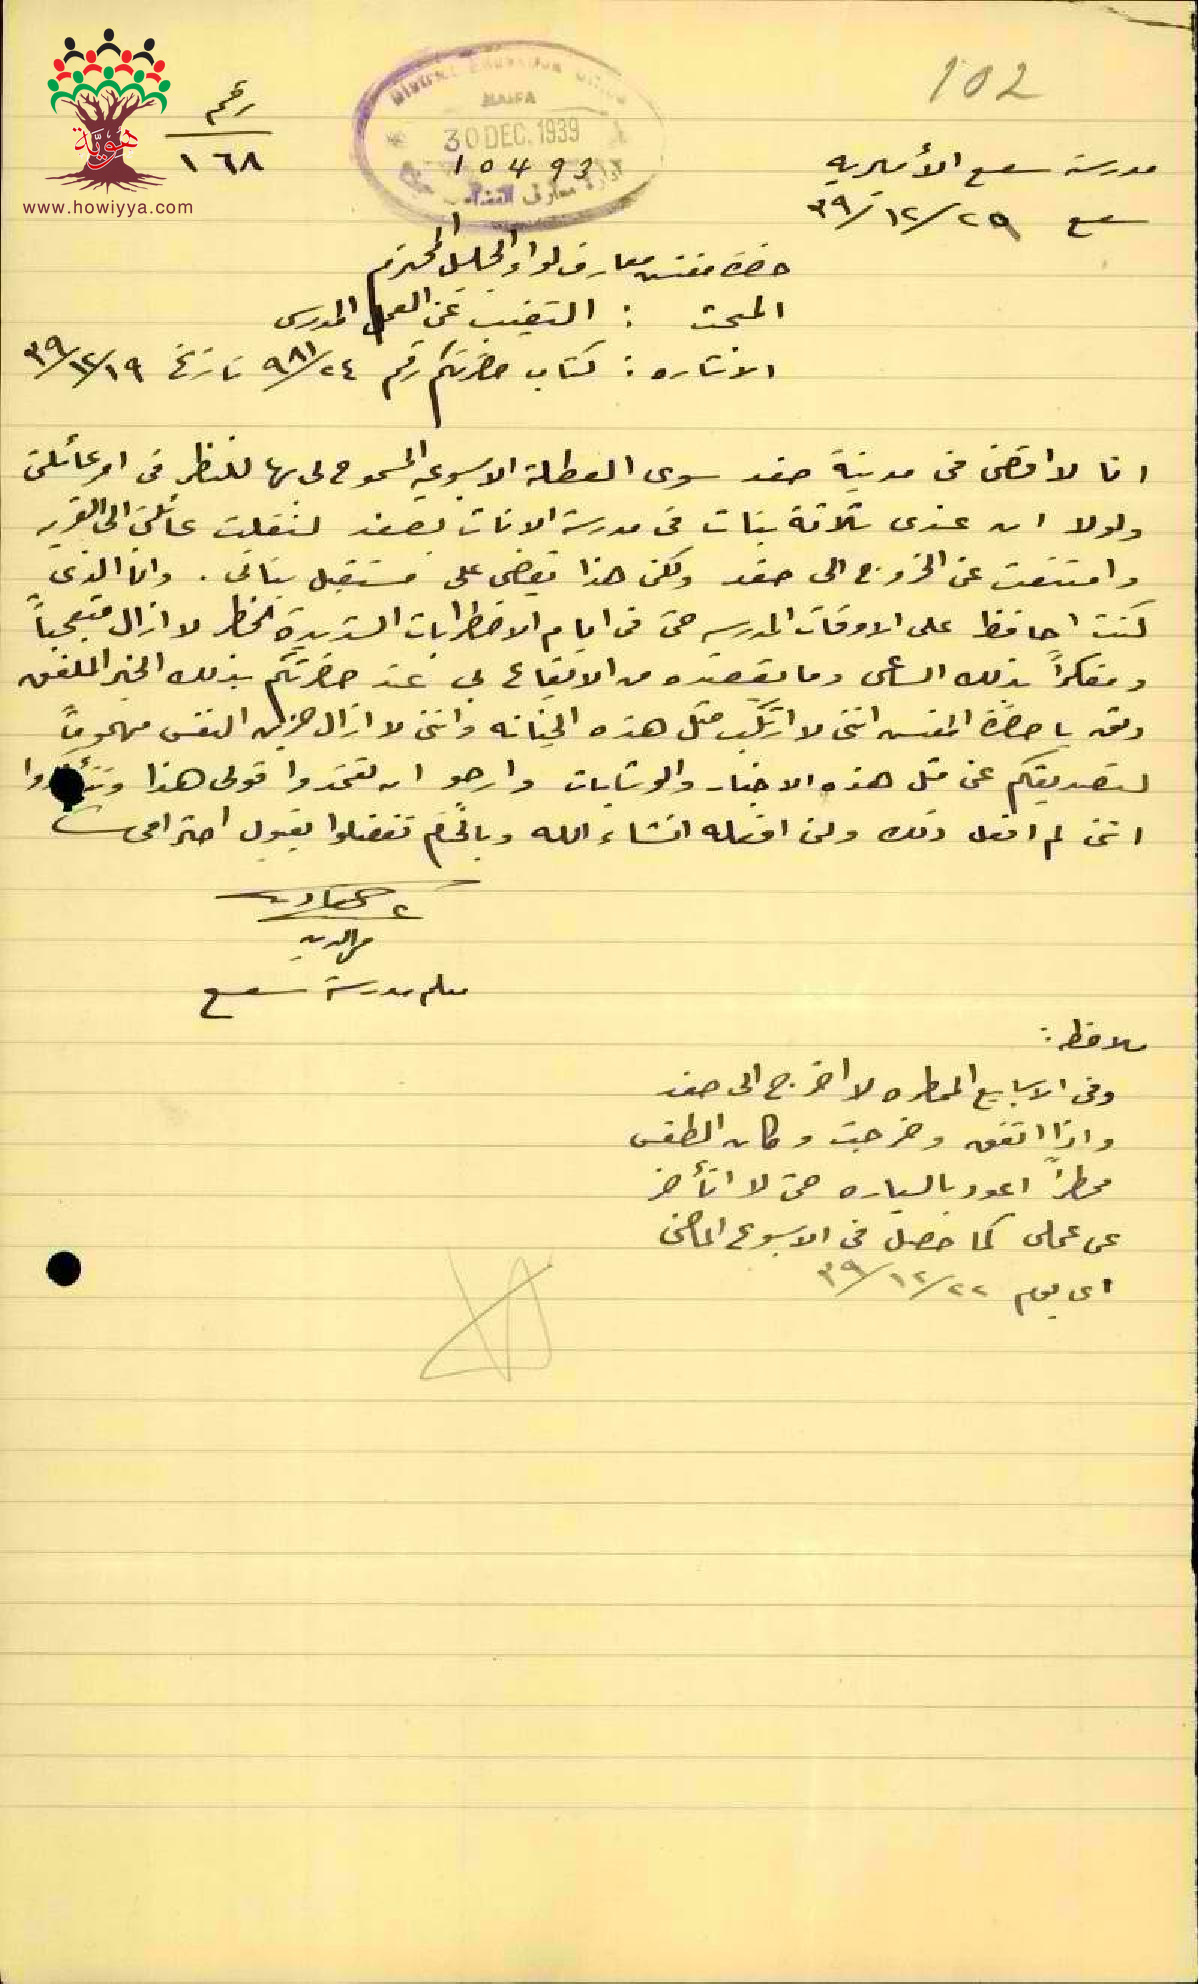 102
هويّة
www.howiyya.com
رقم
١٦٨
DISTRICT EDUCATION OFFICE
HAIFA
30 DEC. 1939
10493
ادارة معارف القضاء
مدرسة سعسع الأميريه
سعسع ٢٩/١٢/٣٩
حضرة مفتش معارف لواء الجليل المحترم
المبحث : التغيب عن العمل المدرسي
الاشاره : كتاب حضرتكم رقم ٩٨١/٢٤ تاريخ ١٩/١٢/٣٩
انا لا اقضي في مدينة صفد سوى العطلة الاسبوعيه المسموح لي بها للنظر في امر عائلتي
ولولا ان عندي ثلاثة بنات في مدرسة الاناث بصفد لنقلت عائلتي الى القريه
وامتنعت عن الخروج الى صفد ولكن هذا يقضي على مستقبل بناتي . وانا الذي
كنت احافظ على الاوقات المدرسيه حتى في ايام الاضطرابات الشديدة الخطر لا ازال متعجباً
ومفكراً بذلك الساعي وما يقصده من الايقاع بي عند حضرتكم بذلك الخبر الملفق
وثق يا حضرة المفتش انني لا ارتكب مثل هذه الخيانه وانني لا ازال حزين النفس مهموماً
لتصديقكم عني مثل هذه الاخبار والوشايات وارجو ان تعتمدوا قولي هذا
انني لم افعل ذلك ولن افعله انشاء الله وبالختام تفضلوا بقبول احترامي
معلم مدرسة سعسع
ملاحظه :
وفي الاسابيع الممطره لا اخرج الى صفد
واذا اتفق وخرجت وكان الطقس
ممطراً اعود بالسياره حتى لا اتأخر
عن عملي كما حصل في الاسبوع الماضي
اي يوم ٢٢/١٢/٣٩